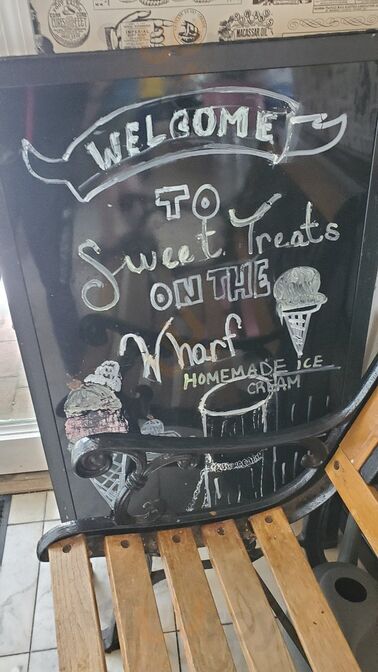 MACASSAR OIL
WELCOME
TO
Sweet Treats
ON THE
Wharf
HOMEMADE ICE
CREAM